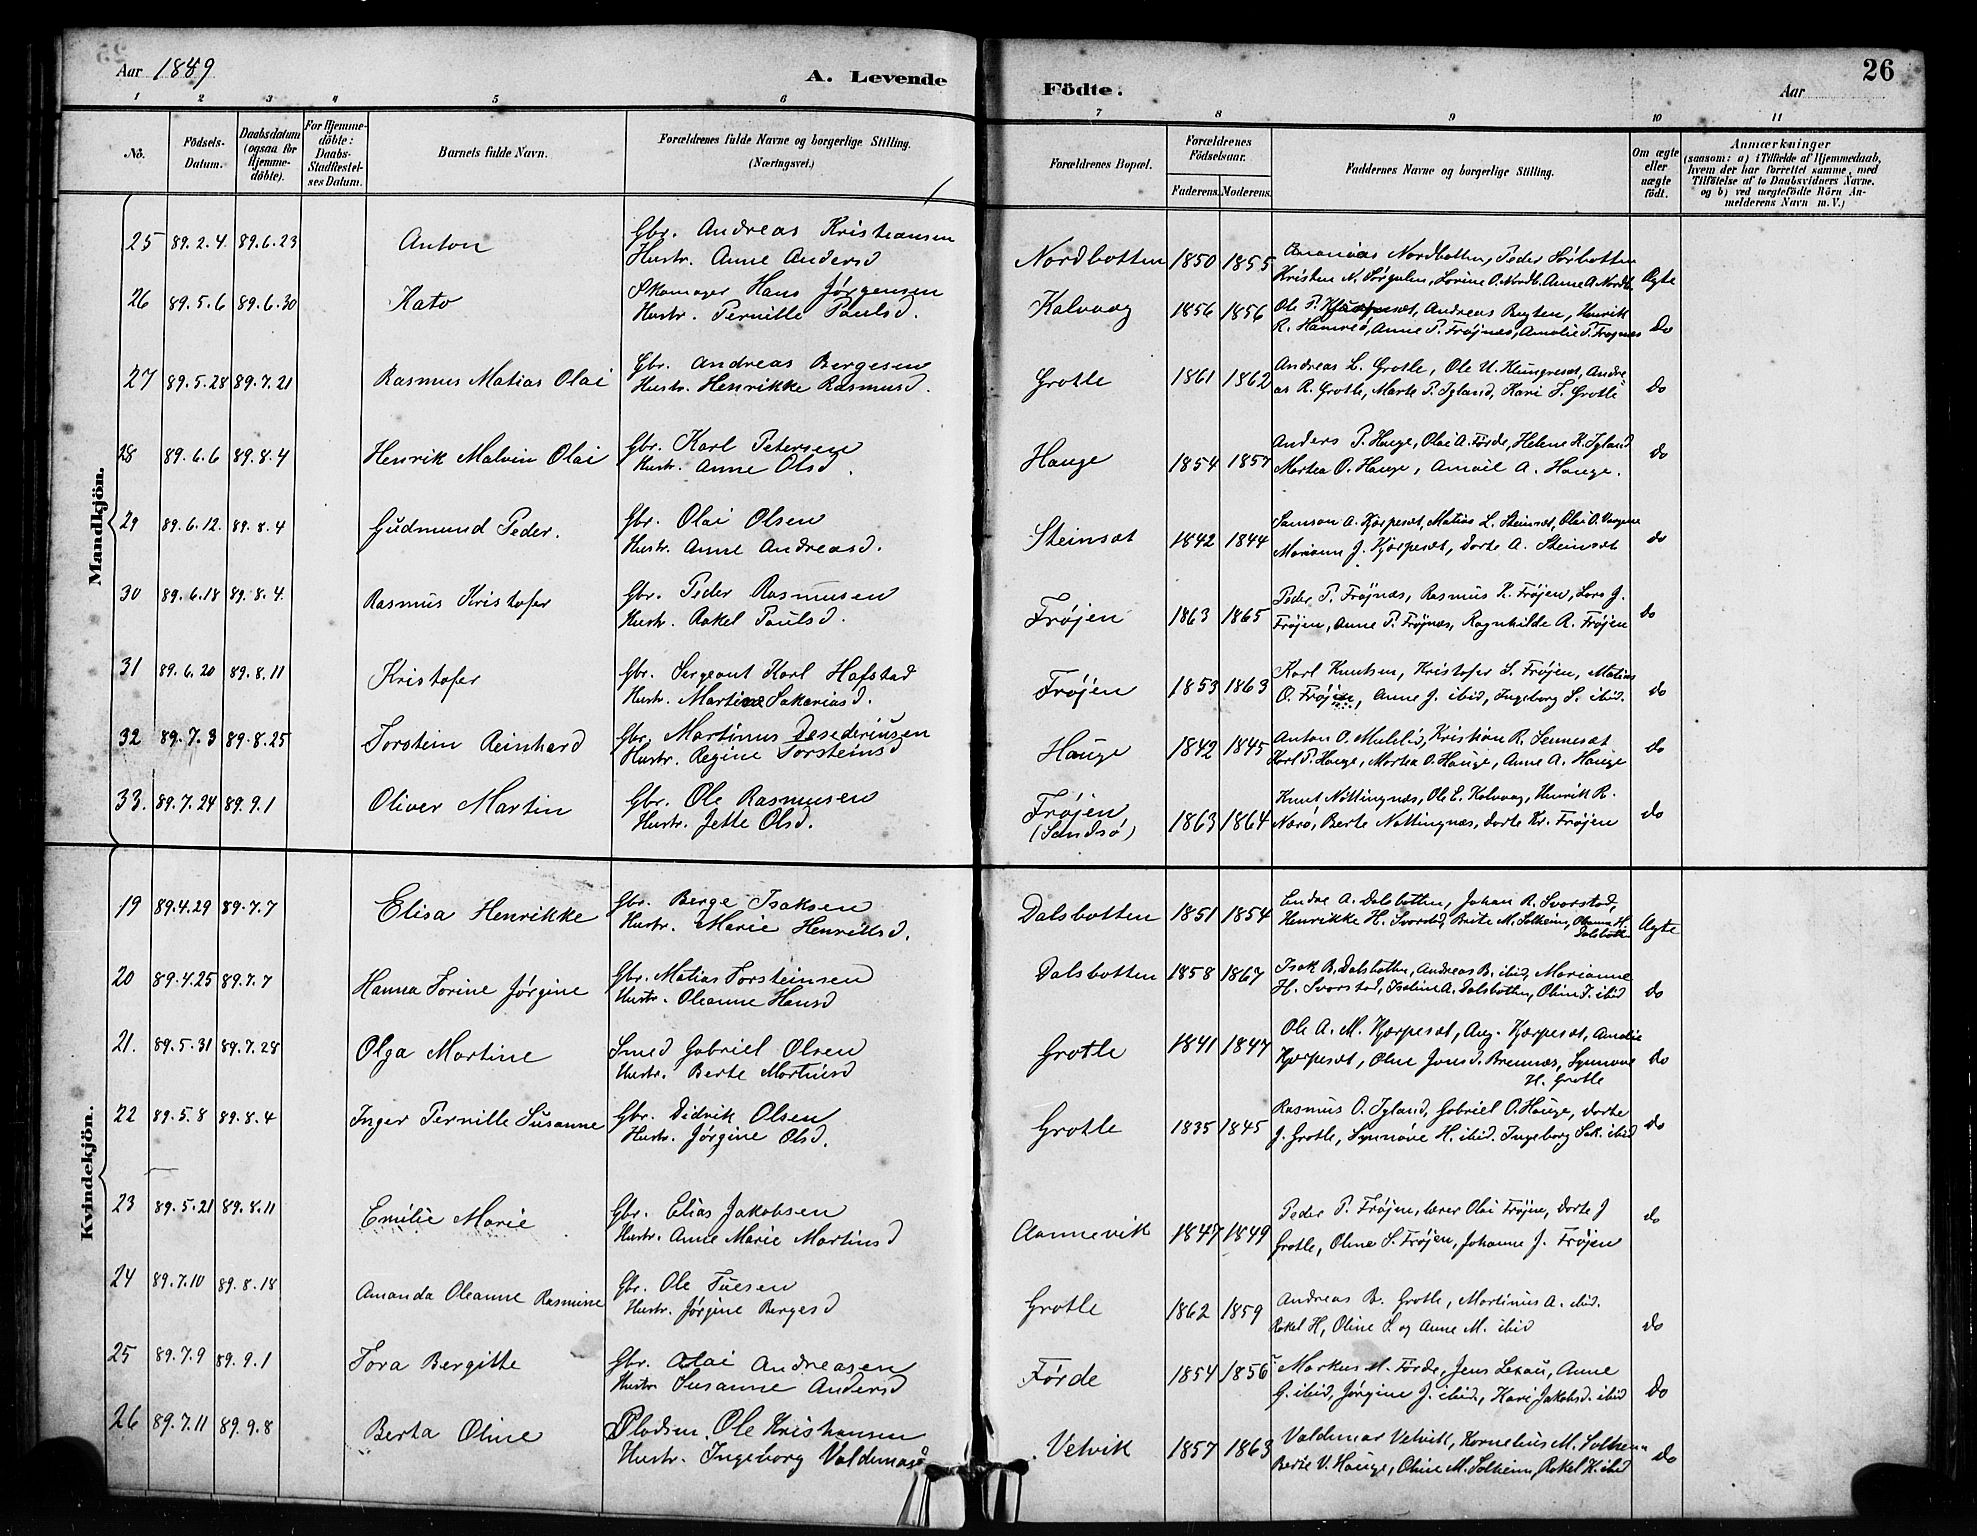 Aar 1889
A. Levende Födte.
26
Aar
1 2 3 4 5 6 7 8 9 10 11
No.
Födsels-Datum.
Daabsdatum (ogsaa for Hjemme-döbte).
For Hjemme-döbte: Daabs-Stadfæstel-ses Datum.
Barnets fulde Navn.
Forældrenes fulde Navne og borgerlige Stilling. (Næringsvei.)
Forældrenes Bopæl.
Forældrenes Födselsaar.
Faderens. Moderens.
Faddernes Navne og borgerlige Stilling.
Om ægte eller uægte födt.
Anmærkninger
(saasom: a) i Tilfælde af Hjemmedaab,
hvem der har forrettet samme, med
Tilföielse af to Daabsvidners Navne.
og b) ved uægtefödte Börn An-
melderens Navn m. V.)
Mandkjön.
25 89.2.4. 89.6.23 Anton Gbr. Andreas Kristiansen
Hustr. Anne Andersd Nordbotten 1850 1855 Nordbotten, Peder Sørbotten
Kristen N. Sørgulen, Lorine O. Nordb. Anne A. Nordb. Ægte
26 89.5.6 89.6.30 Kato Skomager Hans Jørgensen
Hustr. Pernille Paulsd. Kalvaag 1856 1856 Ole P. Andreas Henrik
R. Hamrø, Anne P. Frøjnæs, Amalie P. Frøjnæs do
27 89.5.28 89.7.21 Rasmus Matias Olai Gbr. Andreas Bergesen
Hustr. Henrikke Rasmusd. Grotle 1861 1862 Andreas L. Grotle, Ole U. Klungresæt, Andre
as R. Grotle, Marte P. Igland, Kari S. Grotle do
28 89.6.6 89.8.4 Henrik Malvin Olai Gbr. Karl Petersen
Hustr. Anne Olsd. Hauge 1854 1857 Anders P. Hauge, Olai A. Førde, Helene K. Igland
Martea O. Hauge, A. Hauge. do
29 89.6.12. 89.8.4 Gudmund Peder. Gbr. Olai Olsen
Hustr. Anne Andreasd. Steinsæt 1842 1844 Samson A. Kjørpesæt, Matias L. Steinsæt, Olai O. Vaagene
Mariann J. Kjørpesæt, Dorte A. Steinsæt do
30 89.6.18 89.8.4. Rasmus Kristofer Gbr. Peder Rasmusen
Hustr. Rakel Paulsd. Frøjen 1863 1865 Peder P. Frøjnæs, Rasmus K. Frøjen, Lars J.
Frøjen, Anne P. Frøjnæs, Ragnhilde R. Frøjen do
31 89.6.20 89.8.11 Kristofer Gbr. Sergeant Karl Hafstad
Hustr. Martine Sakariasd. Frøjen 1853 1863 Karl Knutsen, Kristofer S. Frøjen, Matias
O. Frøjen, Anne J. ibid, Ingeborg S. ibid. do
32 89.7.3 89.8.25 Torstein Reinhard Gbr. Martinus Desideriusen
Hustr. Regine Torsteinsd Hauge 1842 1845 Anton O. Mulelid, Kristian R. Sennesæt
Karl P. Hauge, Martea O. Hauge, Anne A. Hauge do
33. 89.7.24 89.9.1 Oliver Martin Gbr. Ole Rasmusen
Hustr. Jette Olsd. Frøjen
(Sandsø) 1863 1864 Knut Nøttingnæs, Ole E. Kalvaag, Henrik R.
Narø, Berte Nøttingnæs, Dorte Kr. Frøjen do
Kvindekjön.
19 89.4.29 89.7.7 Elisa Henrikke Gbr. Berge Isaksen
Hustr. Marie Henriksd. Dalsbotten 1851 1854 Endre A. Dalsbotten, Johan R. Svorstad,
Henrikke H. Svorstad, Brite M. Solheim, H.
Dalsbotten Ægte
20 89.4.25 89.7.7 Hanna Torine Jørgine Gbr. Matias Torsteinsen
Hustr. Oleanne Hansd Dalsbotten 1858 1867 Isak B. Dalsbotten, Andreas B. ibid, Marianne
H. Svorstad, Iseline A. Dalsbotten, Oline I. ibid do
21. 89.5.31 89.7.28 Olga Martine Smed Gabriel Olsen
Hustr. Berte Martinsd Grotle 1841 1847 Ole A. M. Kjørpesæt, Aug. Kjørpesæt, Amalie
Kjørpesæt, Oline Jonsd. Bremnæs, Synnøve
H. Grotle do
22 89.5.8 89.8.4 Inger Pernille Susanne Gbr. Didrik Olsen
Hustr. Jørgine Olsd. Grotle 1835 1845 Rasmus O. Igland, Gabriel O. Hauge, Dorte
J. Grotle, Synnøve H. ibid. Ingeborg Sak. ibid do
23 89.5.21 89.8.11 Emilie Marie Gbr. Elias Jakobsen
Hustr. Anne Marie Martinsd Aannevik 1847 1849 Peder P. Frøjen, lærer Olai Frøjen, Dorte J
Grotle, Oline S. Frøjen, Johanne J. Frøjen do
24 89.7.10 89.8.18 Amanda Oleanne Rasmine Gbr. Ole Tuesen
Hustr. Jørgine Bergesd Grotle 1862 1859 Andreas B. Grotle, Martinus A. ibid.
Rakel H, Oline L og Anne M. ibid do
25 89.7.9 89.9.1 Tora Bergitte Gbr. Olai Andreasen
Hustr Susanne Andersd Førde 1854 1856 Markus M. Førde, Jens Anne
G. ibid, Jørgine J. ibid, Kari Jakobsd. ibid do
26 89.7.11 89.9.8 Berta Oline Pladsm. Ole Kristiansen
Hustr. Ingeborg Valdemarsd Vetvik 1857 1863 Valdemar Vetvik, Kornelius M. Solheim
Berte V. Hauge, Oline M. Solheim, Rakel K. ibid do